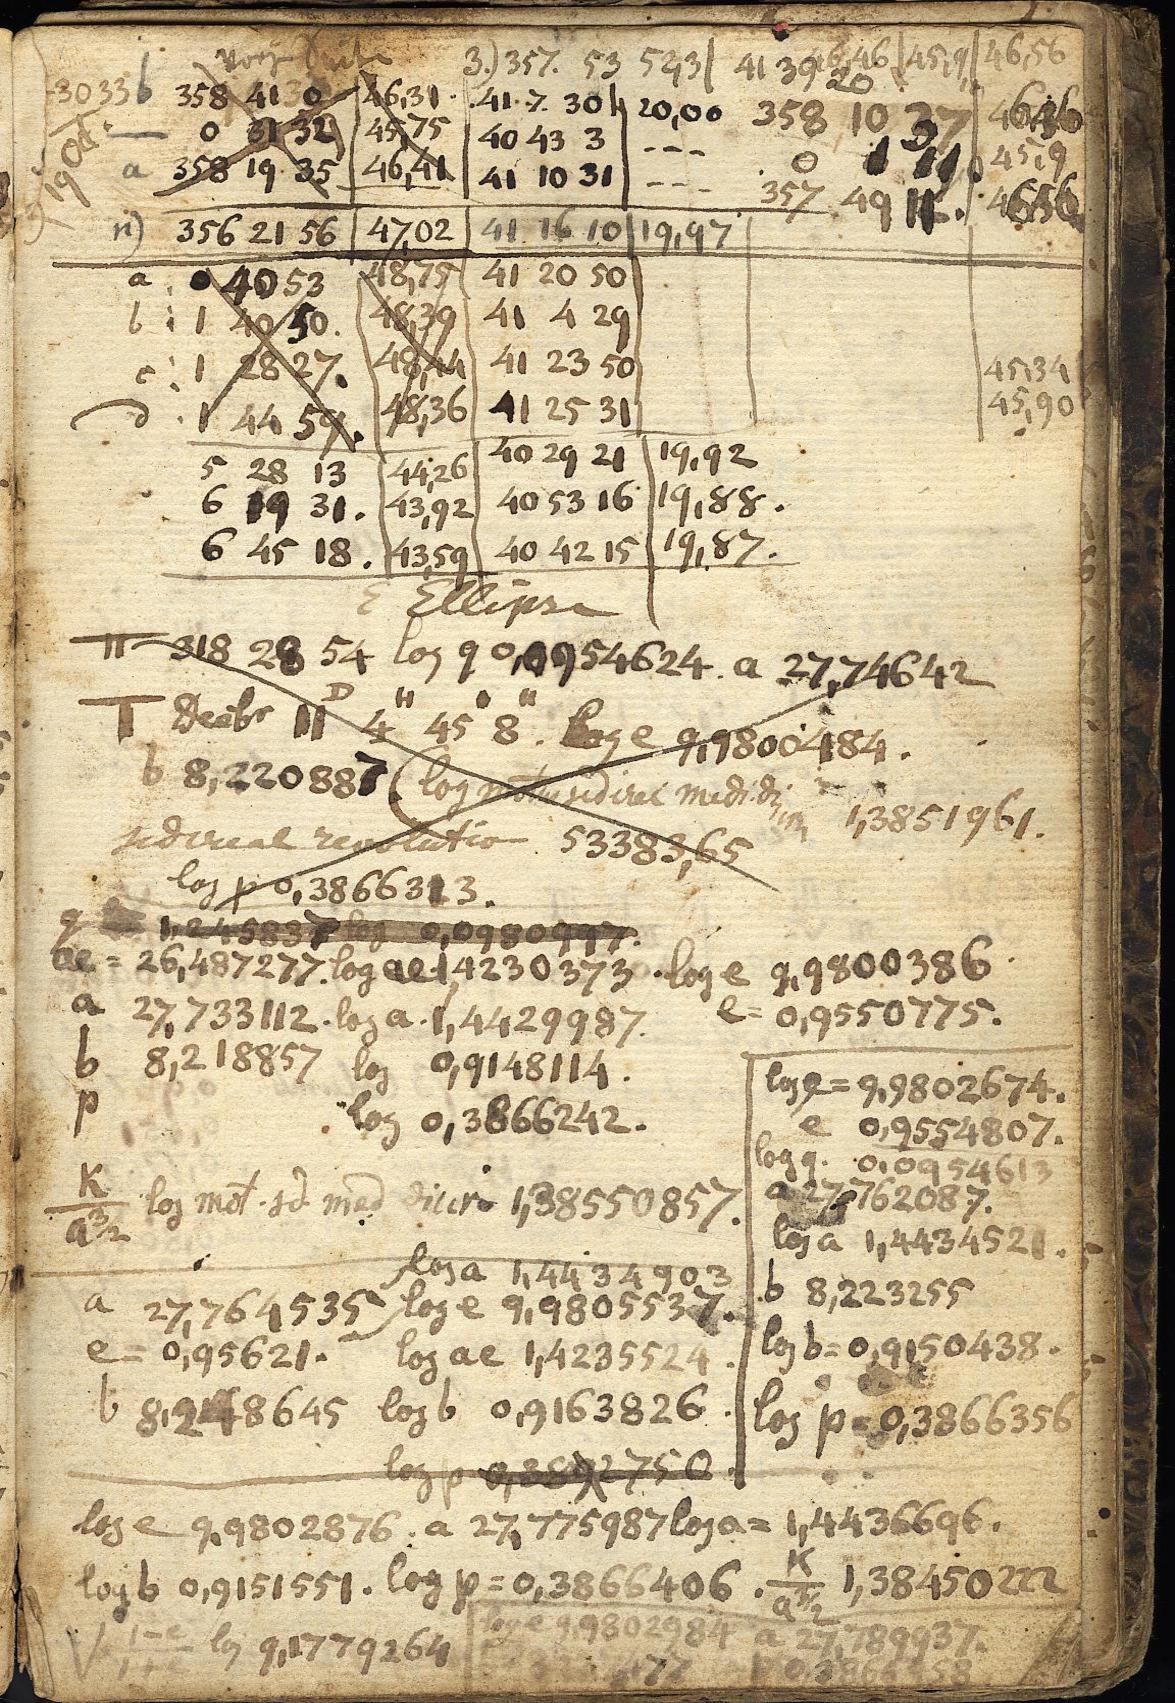 3.) 357. 53 52,3 | 41 39 20 46,46 | 45,9 | 46,56
3033 b 358 41 0 | 46,31 · 41 · 7 · 30 | 20,00 358 10 37 | 46,46
0 31 32 | 45,75 40 43 3 --- 0 1 11. | 45,9
a 358 19 35 | 46,41 41 10 31 --- 357 49 11. | 46,56
n) 356 21 56 | 47,02 | 41 16 10 | 19,97
a 0 40 53 | 48,75 41 20 50
b : 1 40 50. 48,39 41 4 29
c : 1 28 27. 48,44 41 23 50 45,34
d 1 44 59. 48,36 41 25 31 45,90
5 28 13 | 44,26 40 29 21 | 19,92
6 19 31. | 43,92 40 53 16 | 19,88.
6 45 18. | 43,59 40 42 15 | 19,87.
Ellipse
π 318 28 54 log q 0,0954624. a 27,74642
T Decbr 11 D 4 " 45 ' 8 ". log e 9,9800484.
b 8,220887 (log motus siderei medi di 1,3851961.
sidereal revolutio 53383,65
log p 0,3866313.
q 1,245837 log 0,0980997.
ae = 26,487277. log ae 1,4230373 · log e 9,9800386
a 27,733112 · log a · 1,4429987. e = 0,9550775.
b 8,218857 log 0,9148114.
p log 0,3866242.
K/a 3/2 log mot. sd med diurn 1,38550857.
log e = 9,9802674.
e 0,9554807.
log q. 0,0954613
a 27,762087.
log a 1,4434521.
b 8,223255
log b = 0,9150438.
log p = 0,3866356
log a 1,4434903
a 27,764535 log e 9,9805537.
e = 0,95621. log ae 1,4235524.
b 8,248645 log b 0,9163826.
log p 0,3892750.
log e 9,9802876. a 27,775987 log a = 1,4436696.
log b 0,9151551. log p = 0,3866406. K/a 3/2 1,38450222
√ 1-e/1+e lg 9,1779264 log e 9,9802984 a 27,789937.